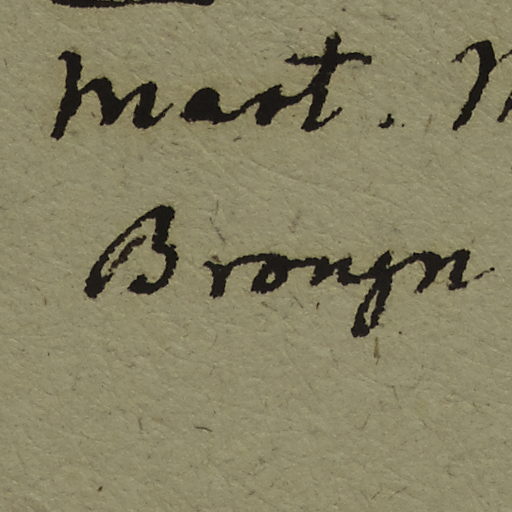 Mart.
Brongn